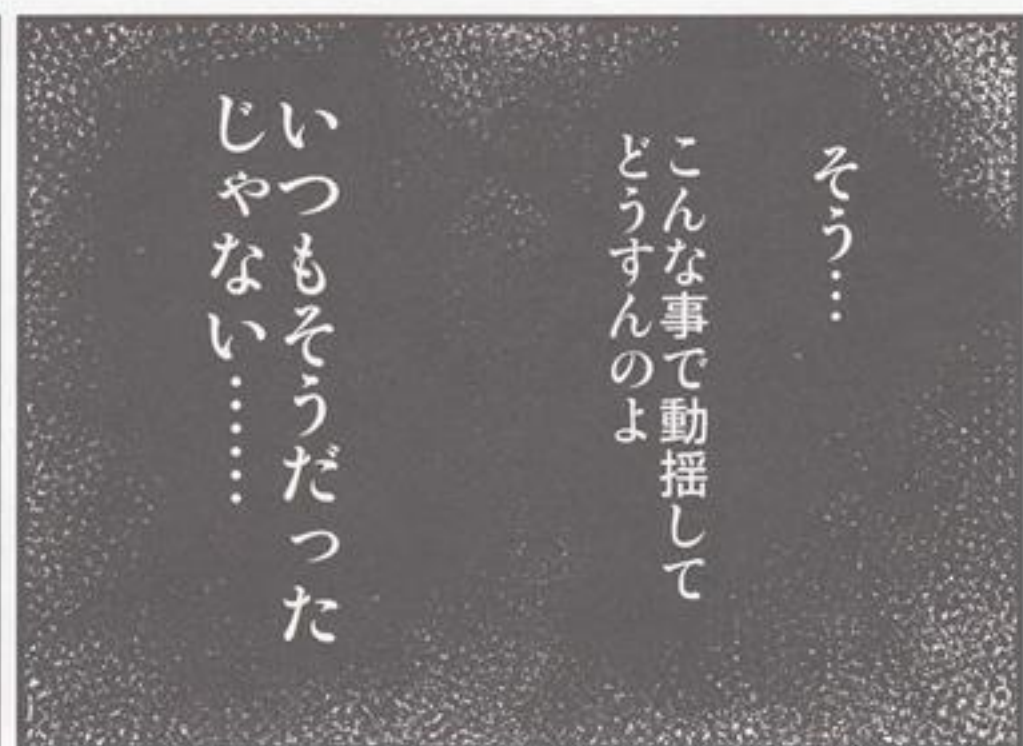 そう…
こんな事で動揺して
どうすんのよ
いつもそうだった
じゃない……